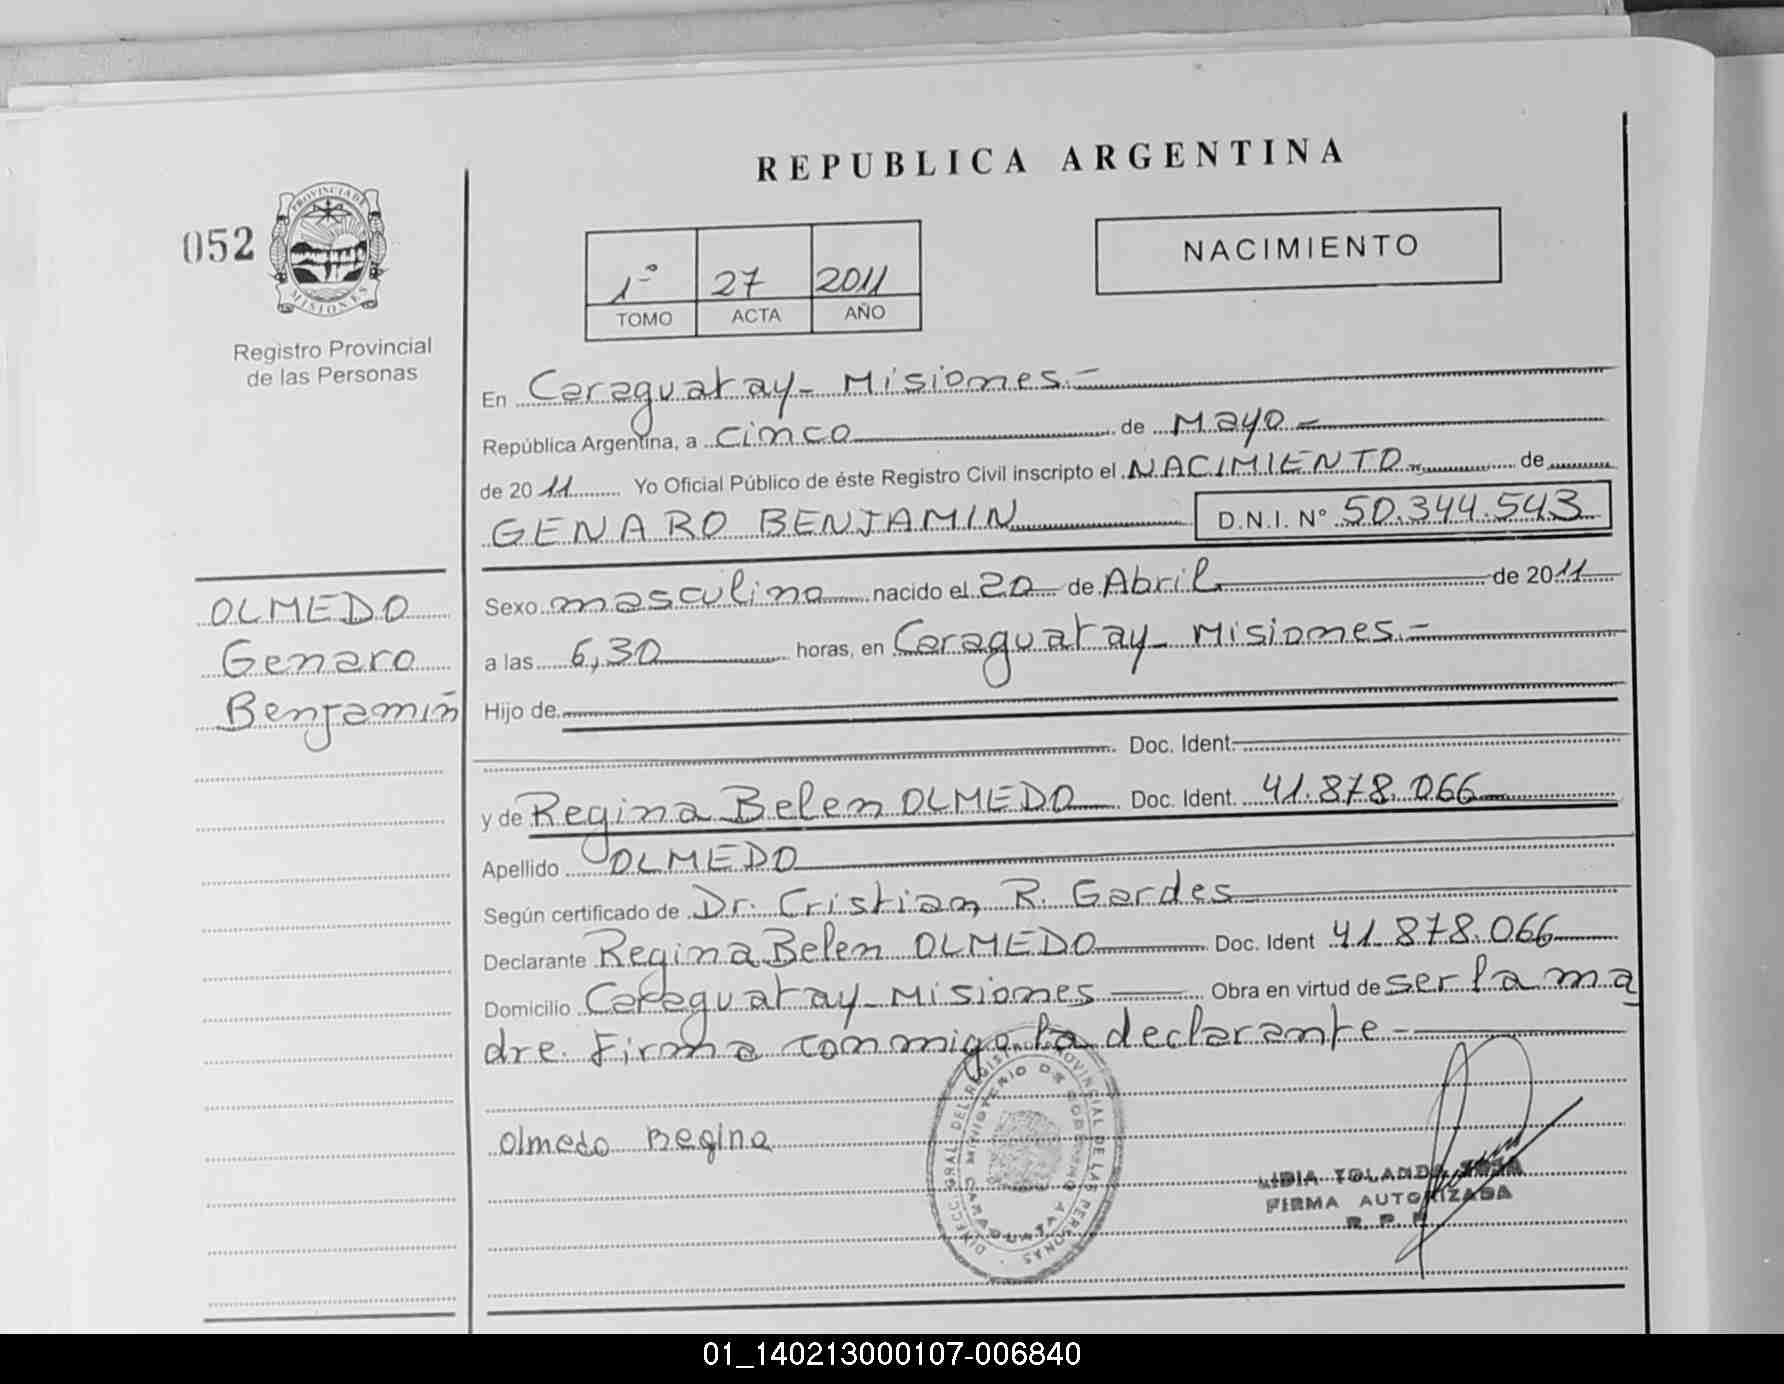 REPUBLICA ARGENTINA
052
PROVINCIA DE
MISIONES
Registro Provincial
de las Personas
1º 27 2011
TOMO ACTA AÑO
NACIMIENTO
En Caraguatay - Misiones.-
República Argentina, a cinco de Mayo -
de 2011 Yo Oficial Público de éste Registro Civil inscripto el NACIMIENTO de
GENARO BENJAMIN D.N.I. Nº 50.344.543
OLMEDO
Genaro
Benjamin
Sexo masculino nacido el 20 de Abril de 2011
a las 6,30 horas, en Caraguatay - Misiones.-
Hijo de
Doc. Ident.
y de Regina Belen OLMEDO Doc. Ident. 41.878.066
Apellido OLMEDO
Según certificado de Dr. Cristian R. Gardes
Declarante Regina Belen OLMEDO Doc. Ident 41.878.066
Domicilio Caraguatay - Misiones Obra en virtud de ser la ma
dre. Firma conmigo la declarante.-
Olmedo Regina
DIRECC. GRAL. DEL REGISTRO PROVINCIAL DE LAS PERSONAS
MINISTERIO DE GOBIERNO
CARAGUATAY
LIDIA YOLANDA
FIRMA AUTORIZADA
R. P. P.
01_140213000107-006840